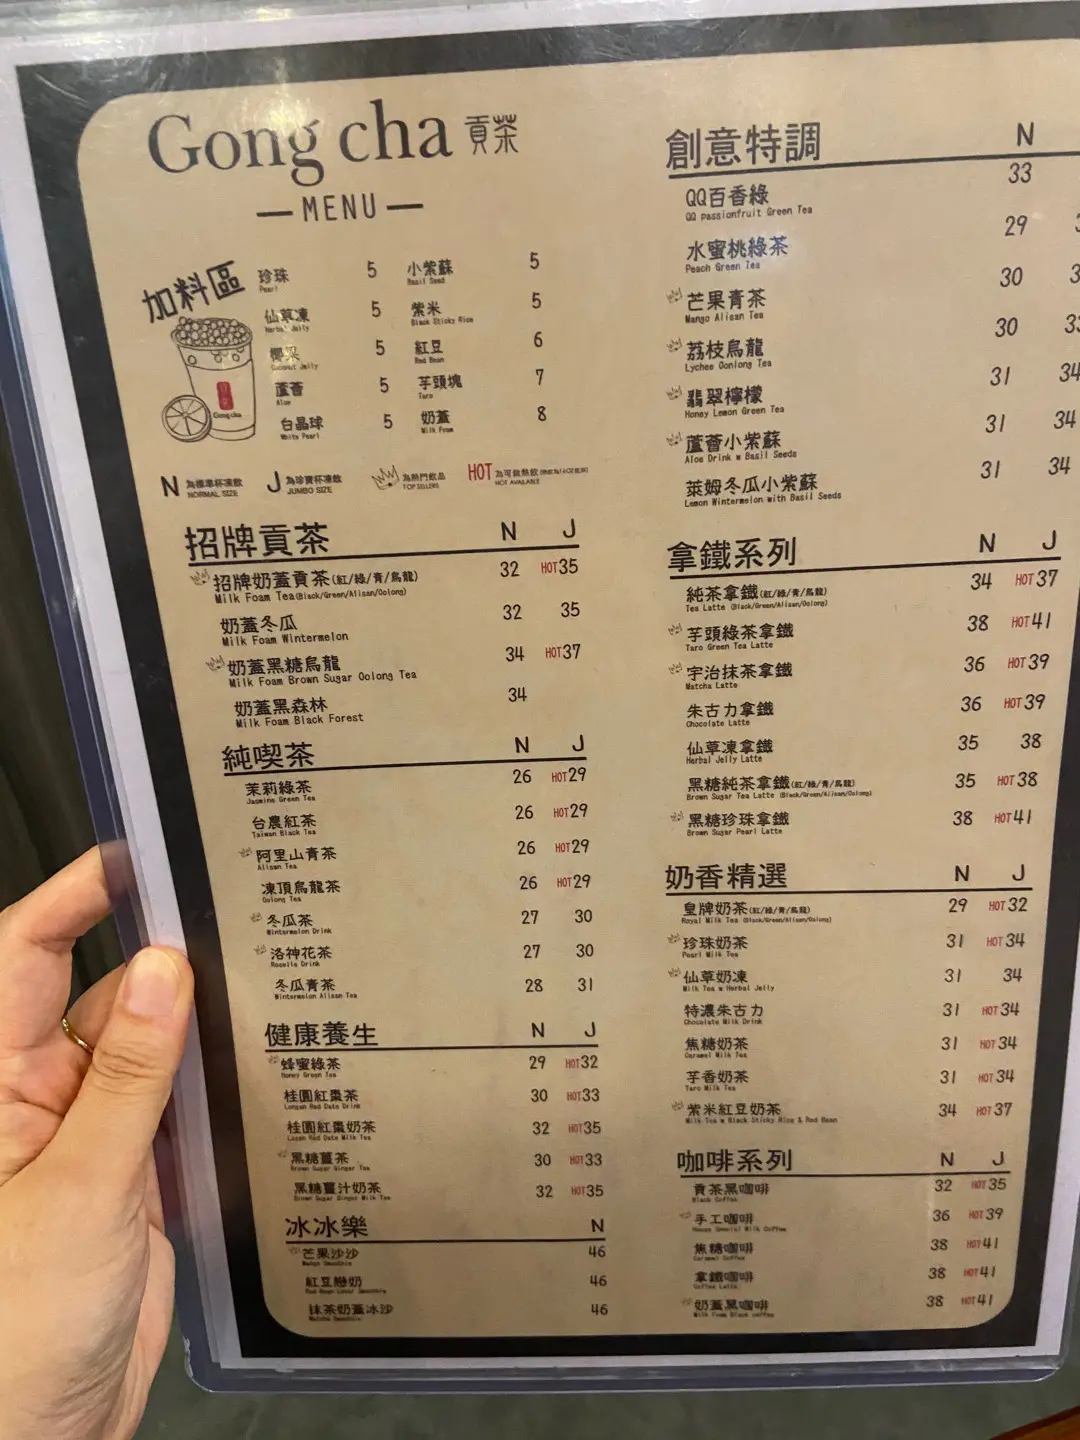 Gong cha 貢茶
MENU
加料區
珍珠 5
Pearl
仙草凍 5
Herbal Jelly
椰果 5
Coconut Jelly
蘆薈 5
Aloe
白晶球 5
White Pearl
小紫蘇 5
Basil Seed
紫米 5
Black Sticky Rice
紅豆 6
Red Bean
芋頭塊 7
Taro
奶蓋 8
Milk Foam
Gong cha
N 為標準杯凍飲
NORMAL SIZE
J 為珍寶杯凍飲
JUMBO SIZE
為熱門飲品
TOP SELLERS
HOT 為可做熱飲
HOT AVAILABLE
招牌貢茶 N J
招牌奶蓋貢茶(紅/綠/青/烏龍) 32 HOT35
Milk Foam Tea(Black/Green/Alisan/Oolong)
奶蓋冬瓜 32 35
Milk Foam Wintermelon
奶蓋黑糖烏龍 34 HOT37
Milk Foam Brown Sugar Oolong Tea
奶蓋黑森林 34
Milk Foam Black Forest
純喫茶 N J
茉莉綠茶 26 HOT29
Jasmine Green Tea
台農紅茶 26 HOT29
Taiwan Black Tea
阿里山青茶 26 HOT29
Alisan Tea
凍頂烏龍茶 26 HOT29
Oolong Tea
冬瓜茶 27 30
Wintermelon Drink
洛神花茶 27 30
Roselle Drink
冬瓜青茶 28 31
Wintermelon Alisan Tea
健康養生 N J
蜂蜜綠茶 29 HOT32
Honey Green Tea
桂圓紅棗茶 30 HOT33
Longan Red Date Drink
桂圓紅棗奶茶 32 HOT35
Logan Red Date Milk Tea
黑糖薑茶 30 HOT33
Brown Sugar Ginger Tea
黑糖薑汁奶茶 32 HOT35
Brown Sugar Ginger Milk Tea
冰冰樂 N
芒果沙沙 46
Mango Smoothie
紅豆戀奶 46
Red Bean Lover Smoothie
抹茶奶蓋冰沙 46
Matcha Smoothie
創意特調 N
QQ百香綠 33
QQ passionfruit Green Tea
水蜜桃綠茶 29
Peach Green Tea
芒果青茶 30
Mango Alisan Tea
荔枝烏龍 30 33
Lychee Oonlong Tea
翡翠檸檬 31 34
Honey Lemon Green Tea
蘆薈小紫蘇 31 34
Aloe Drink w Basil Seeds
萊姆冬瓜小紫蘇 31 34
Lemon Wintermelon with Basil Seeds
拿鐵系列 N J
純茶拿鐵(紅/綠/青/烏龍) 34 HOT37
Tea Latte (Black/Green/Alisan/Oolong)
芋頭綠茶拿鐵 38 HOT41
Taro Green Tea Latte
宇治抹茶拿鐵 36 HOT39
Matcha Latte
朱古力拿鐵 36 HOT39
Chocolate Latte
仙草凍拿鐵 35 38
Herbal Jelly Latte
黑糖純茶拿鐵(紅/綠/青/烏龍) 35 HOT38
Brown Sugar Tea Latte (Black/Green/Alisan/Oolong)
黑糖珍珠拿鐵 38 HOT41
Brown Sugar Pearl Latte
奶香精選 N J
皇牌奶茶(紅/綠/青/烏龍) 29 HOT32
Royal Milk Tea (Black/Green/Alisan/Oolong)
珍珠奶茶 31 HOT34
Pearl Milk Tea
仙草奶凍 31 34
Milk Tea w Herbal Jelly
特濃朱古力 31 HOT34
Chocolate Milk Drink
焦糖奶茶 31 HOT34
Caramel Milk Tea
芋香奶茶 31 HOT34
Taro Milk Tea
紫米紅豆奶茶 34 HOT37
Milk Tea w Black Sticky Rice & Red Bean
咖啡系列 N J
貢茶黑咖啡 32 HOT35
Black Coffee
手工咖啡 36 HOT39
House Special Milk Coffee
焦糖咖啡 38 HOT41
Caramel Coffee
拿鐵咖啡 38 HOT41
Coffee Latte
奶蓋黑咖啡 38 HOT41
Milk Foam Black coffee